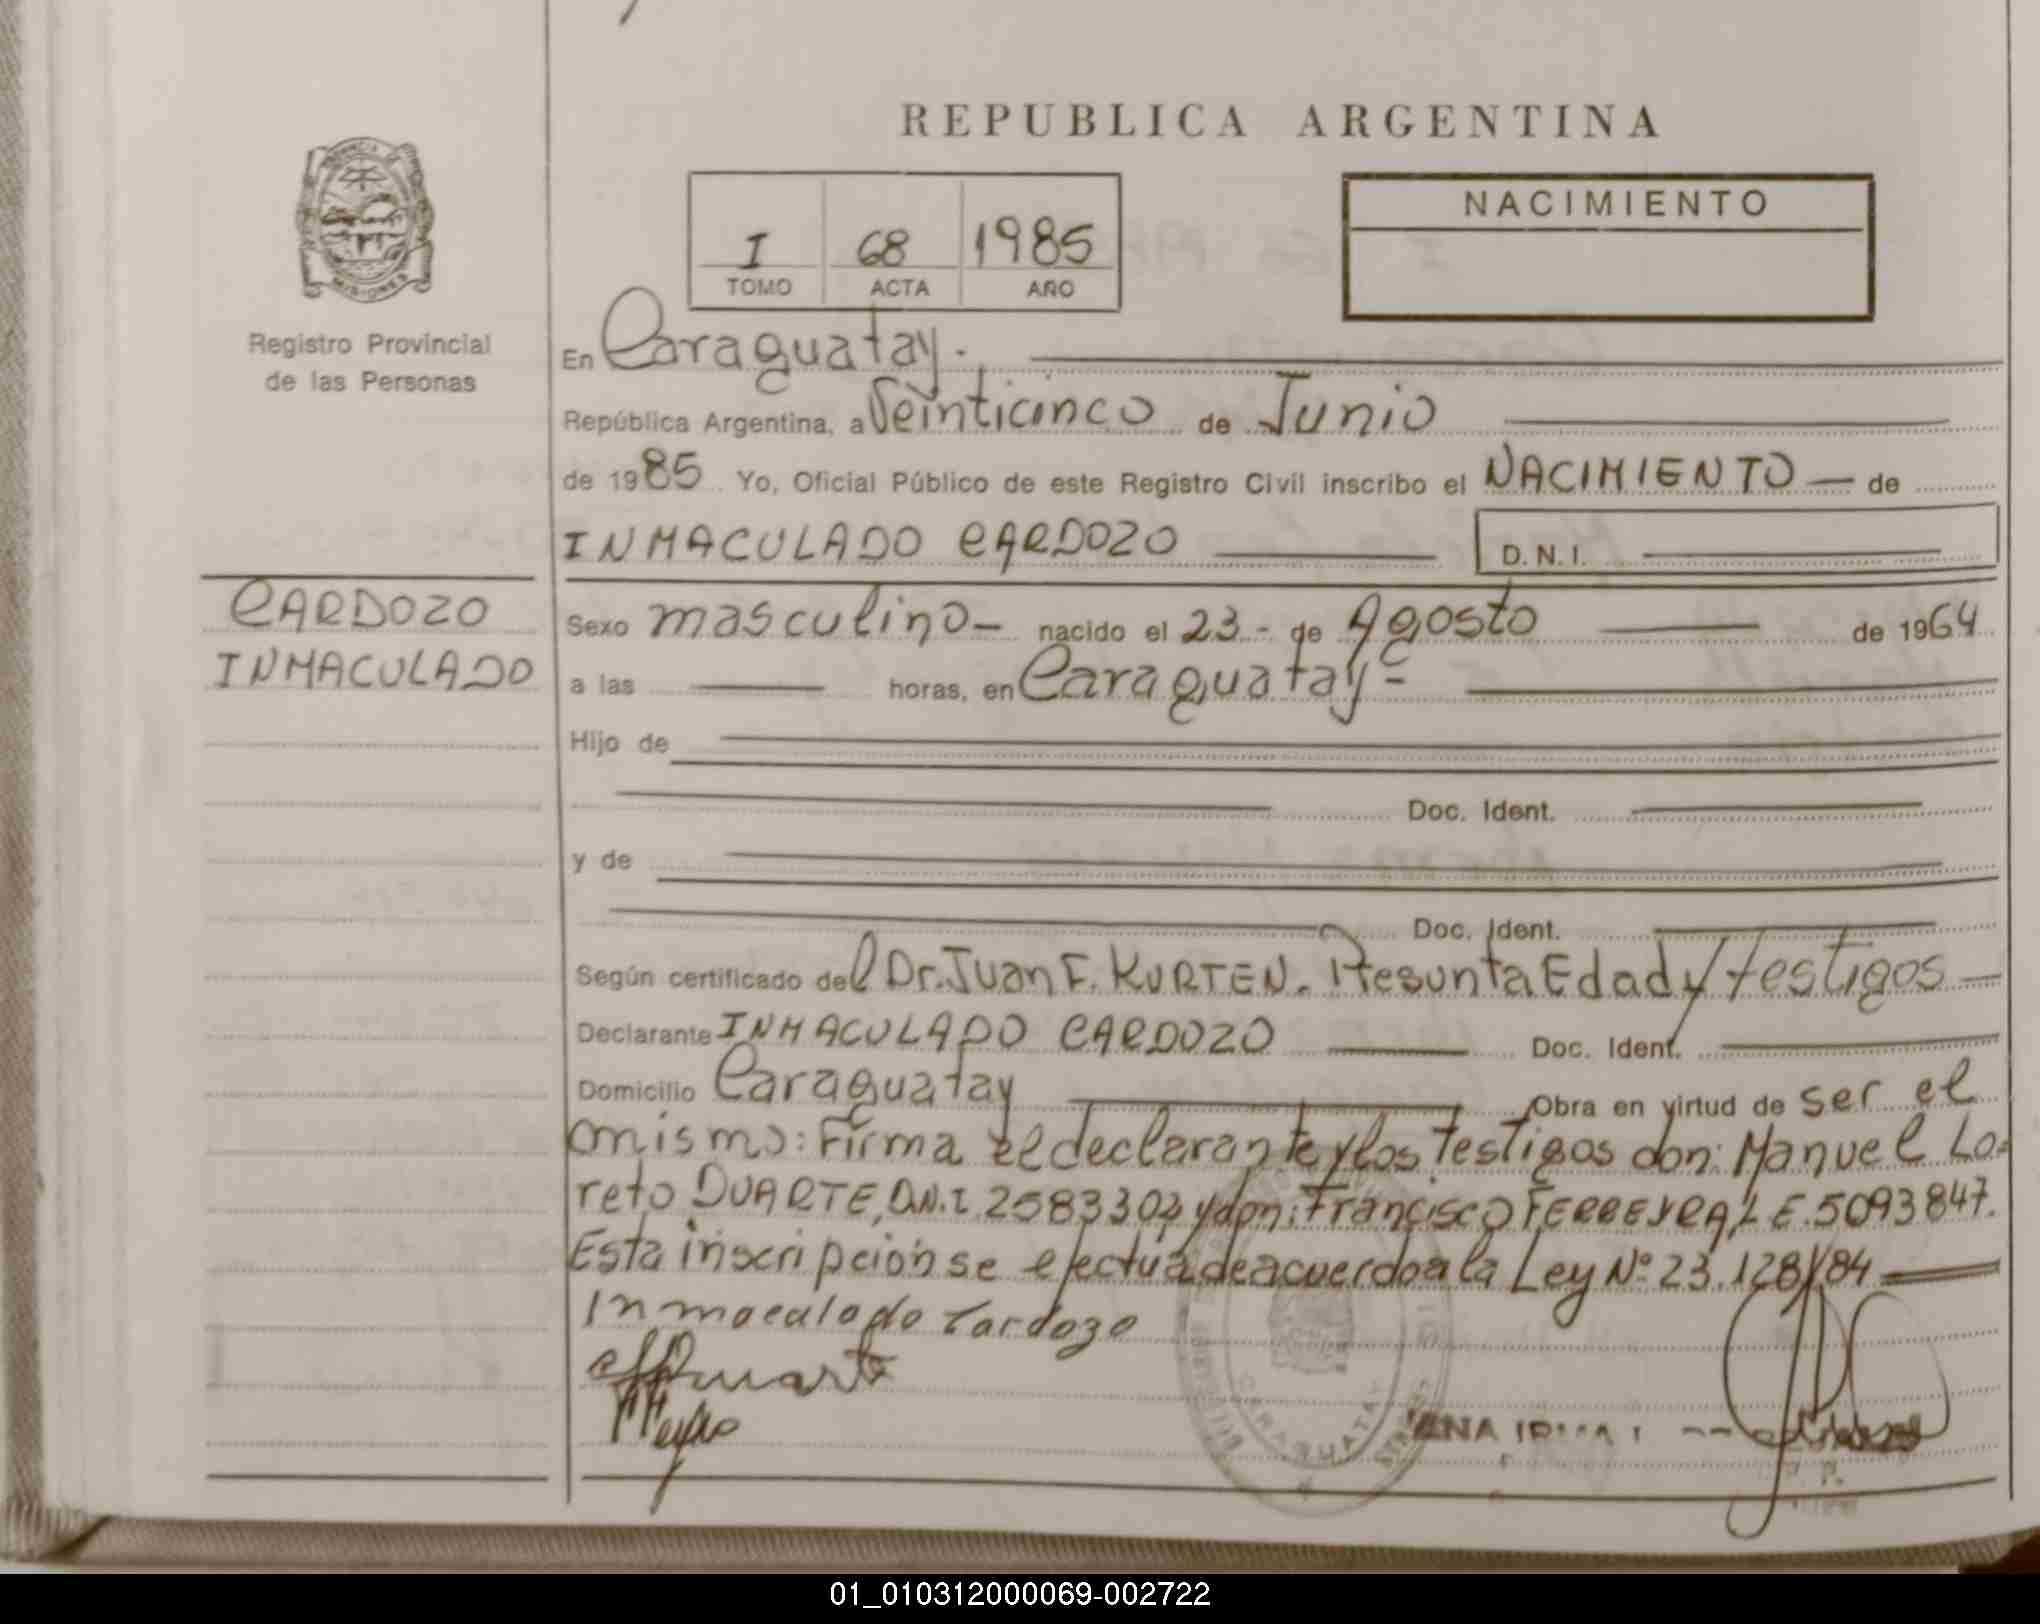 REPUBLICA ARGENTINA
PROVINCIA DE MISIONES
Registro Provincial
de las Personas
I 68 1985
TOMO ACTA AÑO
NACIMIENTO
En Caraguatay.
República Argentina, a Veinticinco de Junio
de 1985 Yo, Oficial Público de este Registro Civil inscribo el NACIMIENTO de
INMACULADO CARDOZO D.N.I.
CARDOZO
INMACULADO
Sexo masculino- nacido el 23- de Agosto de 1964
a las horas, en Caraguatay-
Hijo de
Doc. Ident.
y de
Doc. Ident.
Según certificado del Dr. Juan F. KURTEN. Presunta Edad y testigos
Declarante INMACULADO CARDOZO Doc. Ident.
Domicilio Caraguatay Obra en virtud de ser el
mismo: Firma el declarante y los Testigos don: Manuel Lo-
reto DUARTE, D.N.I. 2583302 y don: Francisco FERREYRA, L E. 5093847.
Esta inscripción se efectua de acuerdo a la Ley Nº 23.128/84
Inmaculado Cardozo
Duarte
CARAGUATAY
ANA
01_010312000069-002722